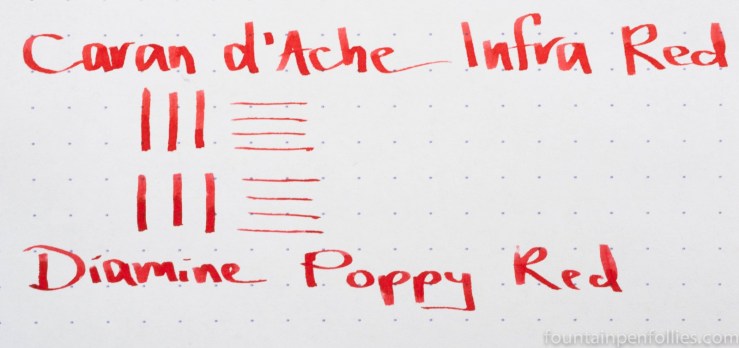 Caran d'Ache Infra Red
Diamine Poppy Red
fountainpenfollies.com